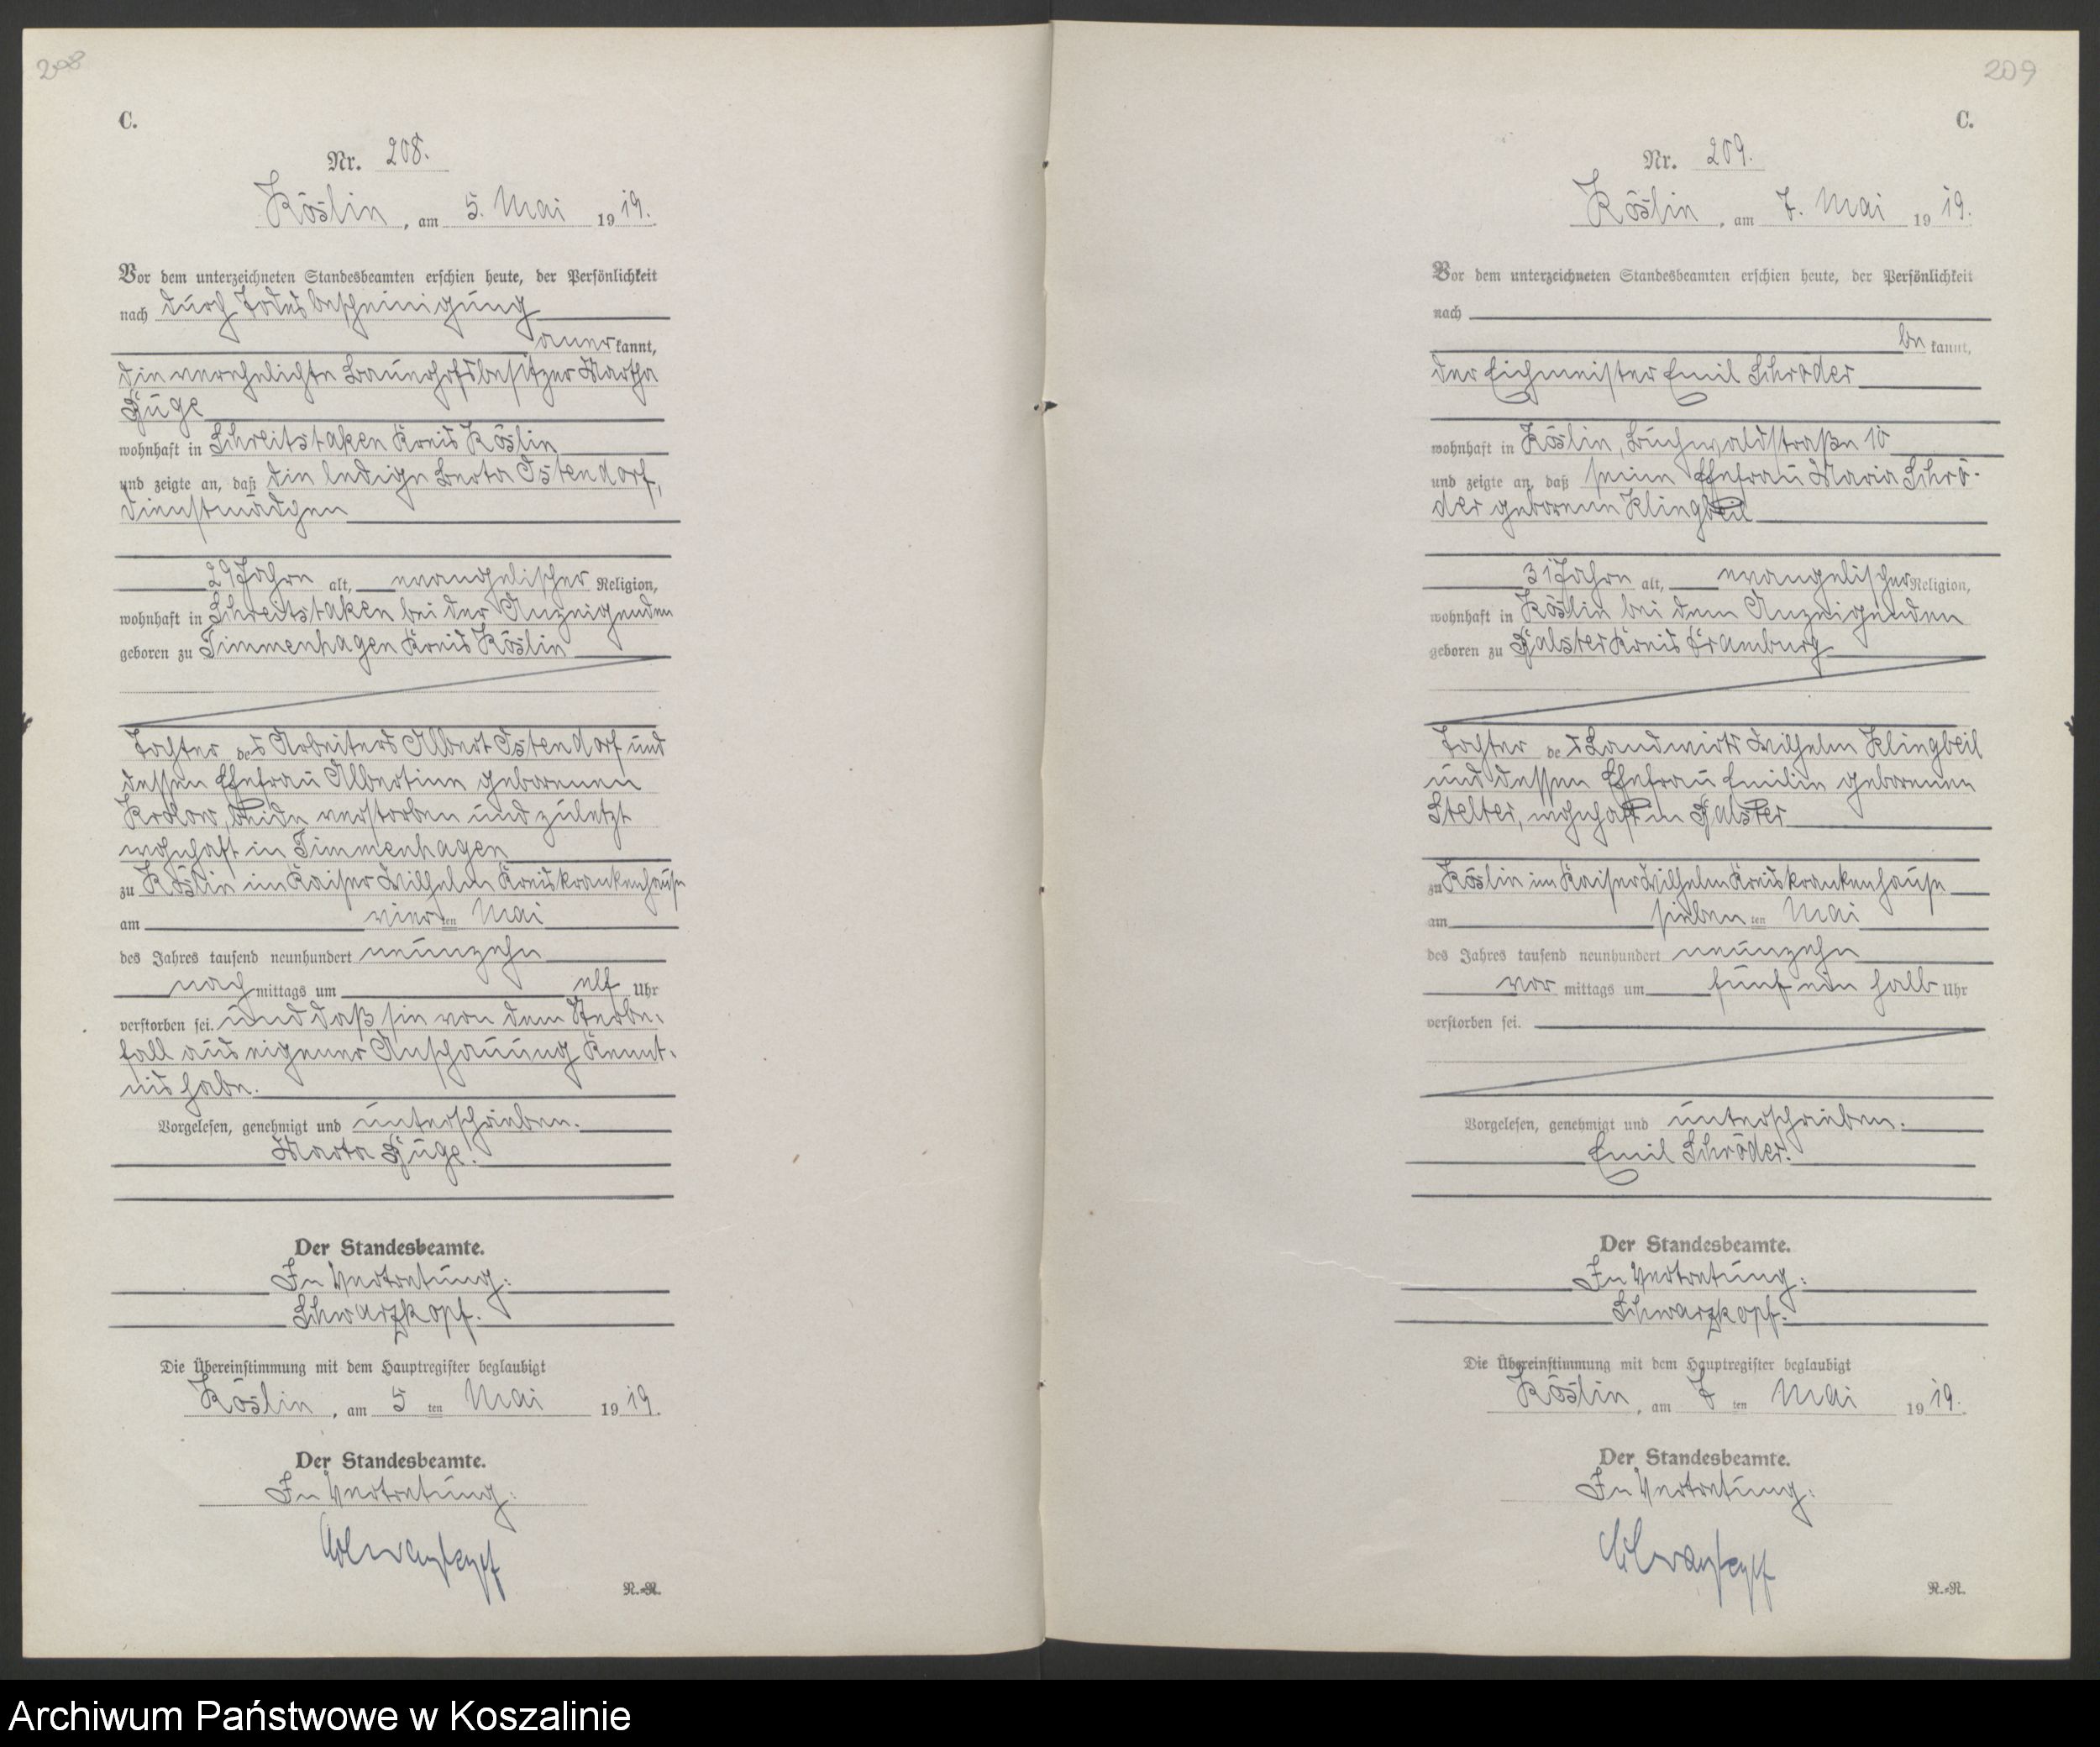 208
C.
Nr. 208.
Köslin, am 5. Mai 1919.
Vor dem unterzeichneten Standesbeamten erschien heute, der Persönlichkeit
nach durch Todesbescheinigung
anerkannt,
die verehelichte Bauerhofsbesitzer Martha
Güge
wohnhaft in Schreitstaken Kreis Köslin
und zeigte an, daß die ledige Berta Ostendorf,
Dienstmädgen
29 Jahre alt, evangelischer Religion,
wohnhaft in Schreitstaken bei der Anzeigenden
geboren zu Timmenhagen Kreis Köslin
Tochter des Arbeiters Albert Ostendorf und
dessen Ehefrau Albertine geborenen
Krolow, beide verstorben und zuletzt
wohnhaft in Timmenhagen
zu Köslin im Kaiser Wilhelm Kreiskrankenhause
am vierten Mai
des Jahres tausend neunhundert neunzehn
nachmittags um elf Uhr
verstorben sei. und daß sie von dem Sterbe-
fall aus eigener Anschauung Kennt-
nis habe.
Vorgelesen, genehmigt und unterschrieben.
Marta Güge.
Der Standesbeamte.
In Vertretung:
Schwarzkopf.
Die Übereinstimmung mit dem Hauptregister beglaubigt
Köslin, am 5ten Mai 1919.
Der Standesbeamte.
In Vertretung:
Schwarzkopf
R.-R.
209
C.
Nr. 209.
Köslin, am 7. Mai 1919.
Vor dem unterzeichneten Standesbeamten erschien heute, der Persönlichkeit
nach
bekannt,
der Eichmeister Emil Schröder
wohnhaft in Köslin, Buchwaldstraße 10
und zeigte an, daß seine Ehefrau Maria Schrö-
der geborene Klingbeil
31 Jahre alt, evangelischer Religion,
wohnhaft in Köslin bei dem Anzeigenden
geboren zu Galster Kreis Dramburg
Tochter des Landwirts Wilhelm Klingbeil
und dessen Ehefrau Emilie geborenen
Stelter, wohnhaft in Galster
zu Köslin im Kaiser Wilhelm Kreiskrankenhause
am siebenten Mai
des Jahres tausend neunhundert neunzehn
vormittags um fünf ein halb Uhr
verstorben sei.
Vorgelesen, genehmigt und unterschrieben.
Emil Schröder.
Der Standesbeamte.
In Vertretung:
Schwarzkopf.
Die Übereinstimmung mit dem Hauptregister beglaubigt
Köslin, am 7ten Mai 1919.
Der Standesbeamte.
In Vertretung:
Schwarzkopf
R.-R.
Archiwum Państwowe w Koszalinie